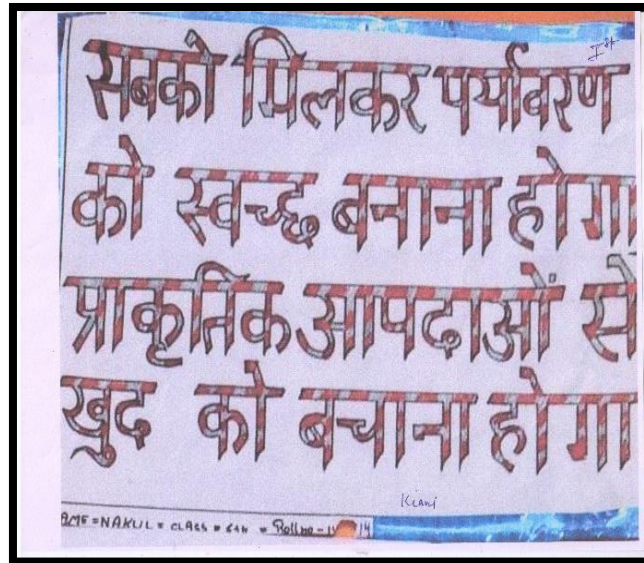 Ist
सबको मिलकर पर्यावरण
को स्वच्छ बनाना होगा
प्राकृतिक आपदाओं से
खुद को बचाना होगा
NAME=NAKUL = CLASS = 6th = Roll no -